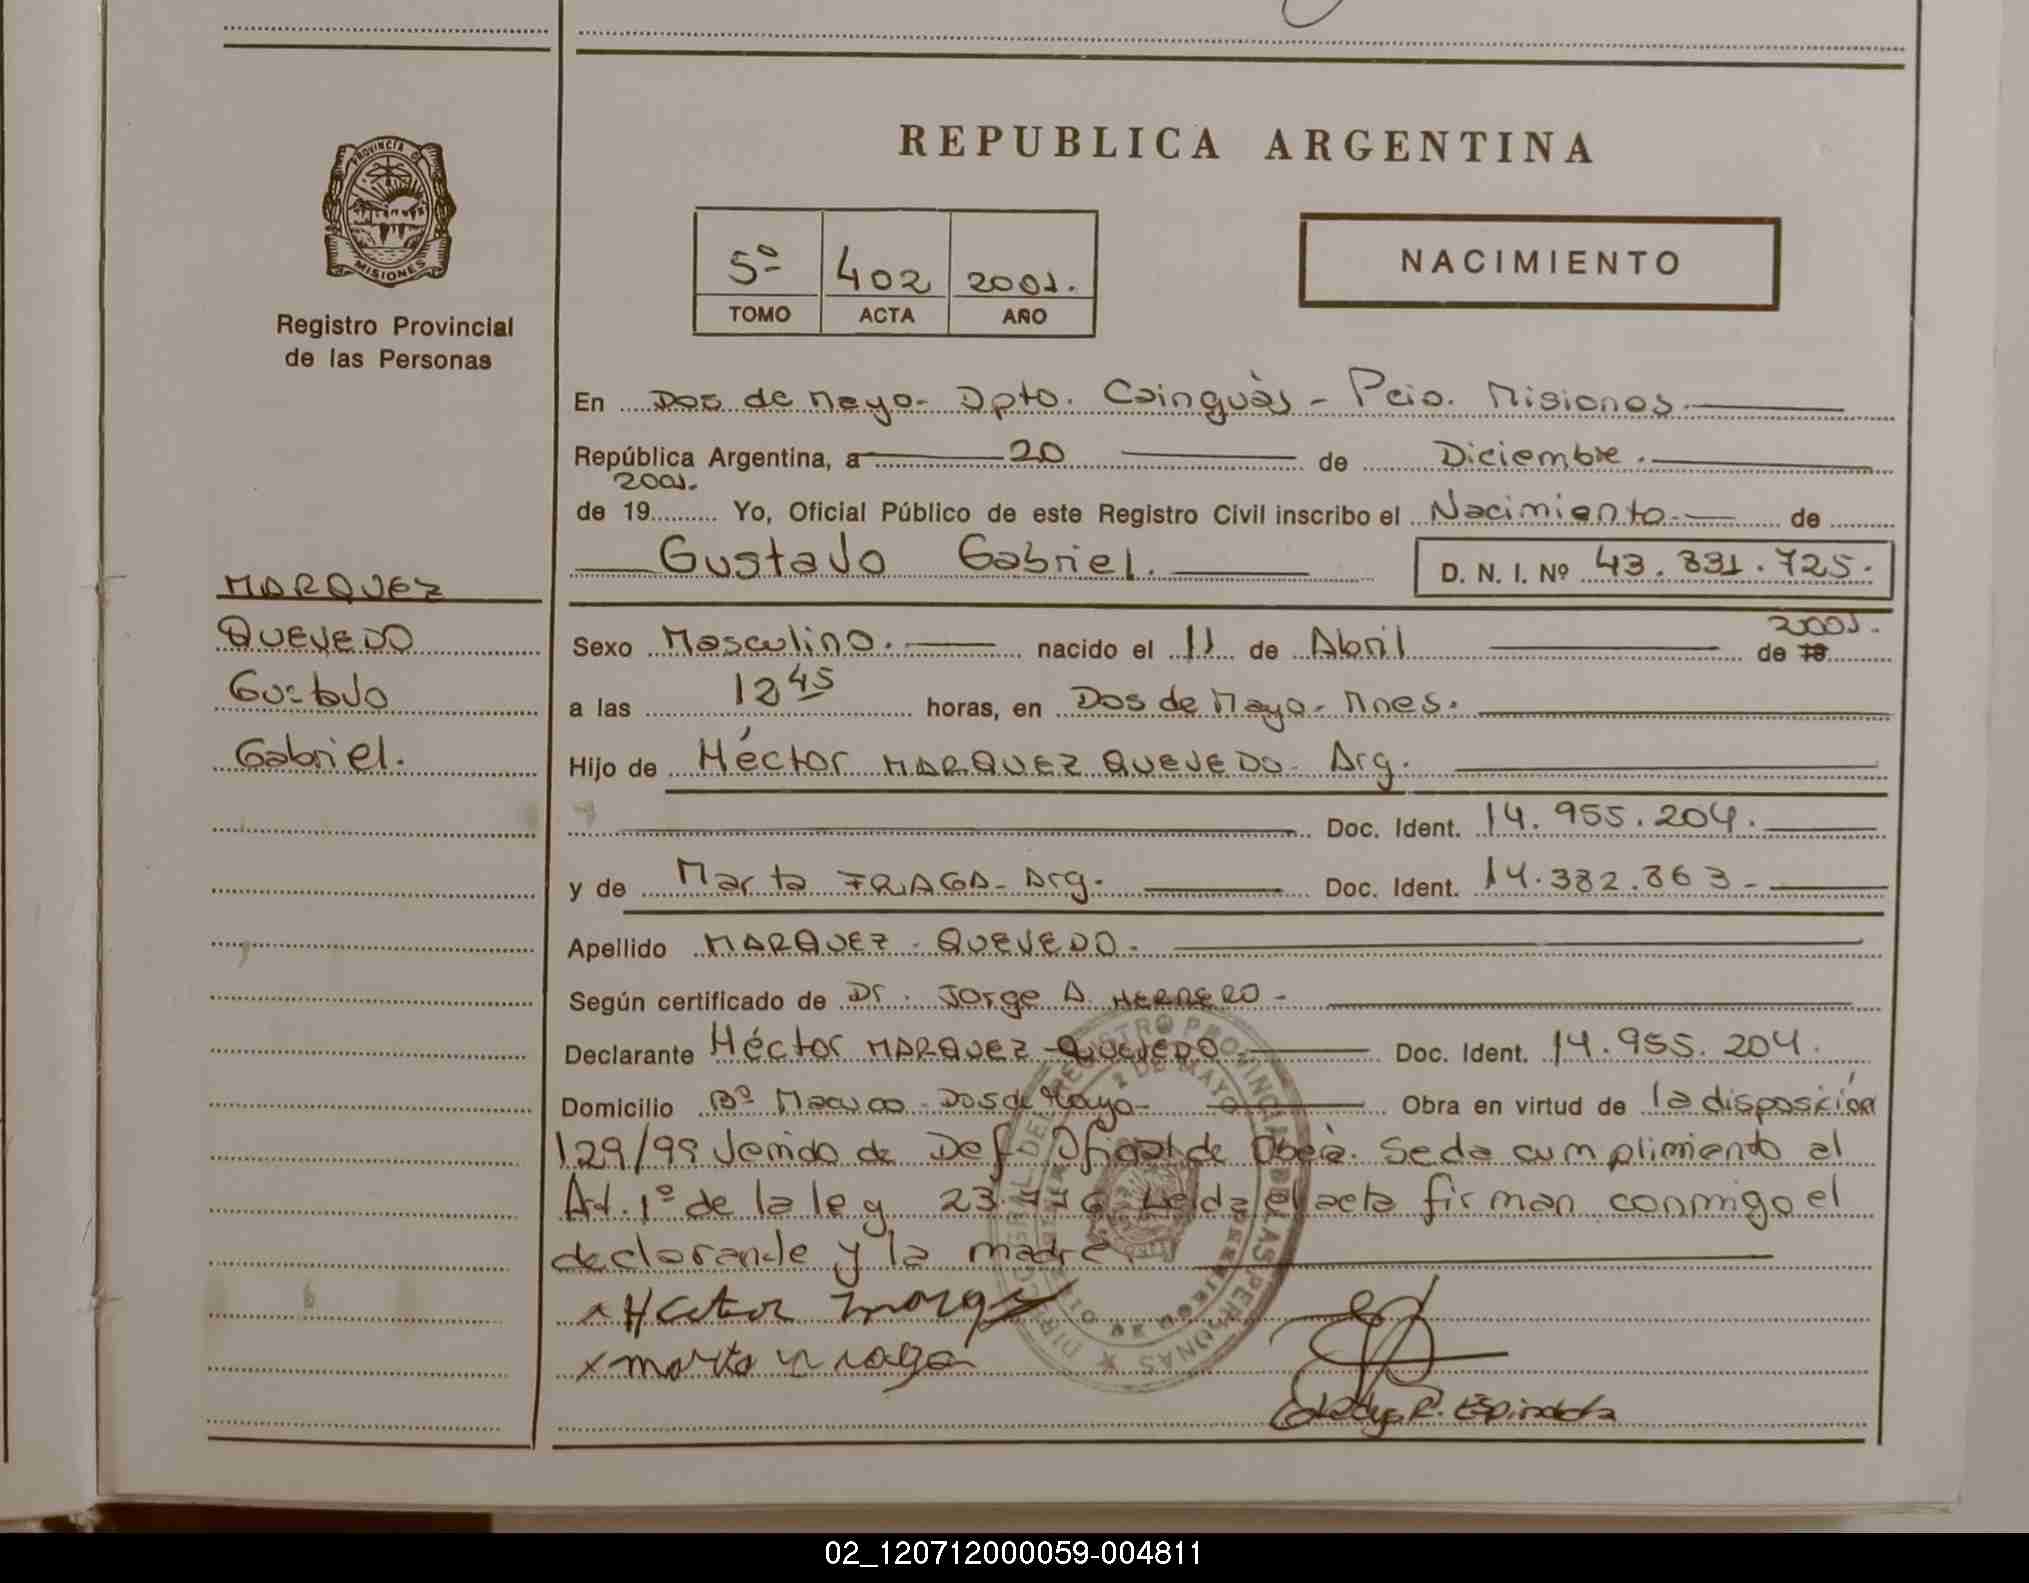 REPUBLICA ARGENTINA
PROVINCIA DE
MISIONES
Registro Provincial
de las Personas
5º 402 2001.
TOMO ACTA AÑO
NACIMIENTO
En Dos de Mayo- Dpto. Cainguàs - Pcia. Misiones.
República Argentina, a 20 de Diciembre.
2001.
de 19 Yo, Oficial Público de este Registro Civil inscribo el Nacimiento de
Gustavo Gabriel.
D. N. I. Nº 43.331.725.
MARQUEZ
QUEVEDO
Gustavo
Gabriel.
Sexo Masculino. nacido el 11 de Abril de 19 2001.
a las 12 45 horas, en Dos de Mayo- Mnes.
Hijo de Héctor MARQUEZ QUEVEDO- Arg.
Doc. Ident. 14.955.204.
y de Marta FRAGA- Arg. Doc. Ident. 14.382.363-
Apellido MARQUEZ - QUEVEDO.
Según certificado de Dr. Jorge A. HERRERO-
Declarante Héctor MARQUEZ QUEVEDO- Doc. Ident. 14.955.204.
Domicilio Bº Macuco- Dos de Mayo- Obra en virtud de la disposición
129/99 Venida de Def. Oficial de Oberà. Se da cumplimiento al
Art. 1º de la ley 23.776 Leida el acta firman conmigo el
declarante y la madre.
x Hector
x marta
R. Espindola
REGISTRO PROVINCIAL DE LAS PERSONAS
2 DE MAYO
02_120712000059-004811